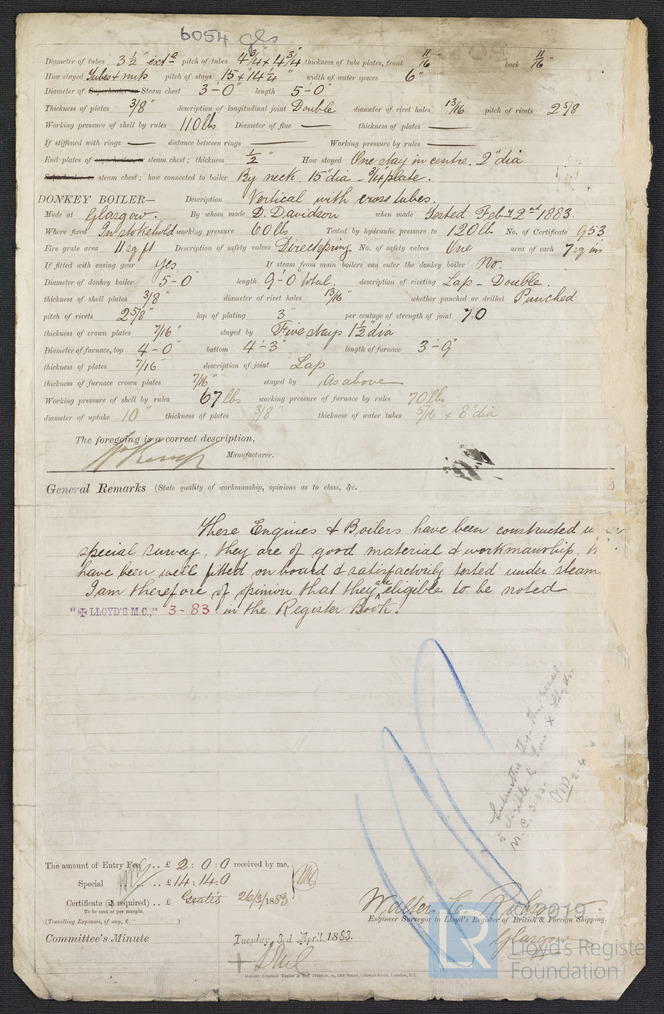 6054 gls
Diameter of tubes 3½" ext^l pitch of tubes 4¾ x 4¾ thickness of tube plates, front 11/16 back 11/16"
How stayed Tubes & nuts pitch of stays 15 x 14¼" width of water spaces 6"
Diameter of Superheater or Steam chest 3'-0" length 5'-0"
Thickness of plates 3/8" description of longitudinal joint Double diameter of rivet holes 13/16 pitch of rivets 2 5/8
Working pressure of shell by rules 110 lbs Diameter of flue — thickness of plates —
If stiffened with rings — distance between rings — Working pressure by rules —
End plates of superheater or steam chest; thickness ½" How stayed One stay in centre. 2" dia
Superheater or steam chest; how connected to boiler By neck. 15" dia - ¾ plate.
DONKEY BOILER— Description Vertical with cross tubes.
Made at Glasgow. By whom made D. Davidson when made Tested Feb^y 2nd 1883.
Where fixed In stokehold working pressure 60 lbs Tested by hydraulic pressure to 120 lb No. of Certificate 953
Fire grate area 11 sq ft Description of safety valves Direct spring No. of safety valves One area of each 7 sq in
If fitted with easing gear Yes If steam from main boilers can enter the donkey boiler No.
Diameter of donkey boiler 5'-0" length 9'-0" total. description of riveting Lap - Double.
thickness of shell plates 3/8 diameter of rivet holes 13/16" whether punched or drilled Punched
pitch of rivets 2 5/8" lap of plating 3" per centage of strength of joint 70
thickness of crown plates 7/16" stayed by Five stays 1½" dia
Diameter of furnace, top 4'-0" bottom 4'-3" length of furnace 3'-9"
thickness of plates 7/16" description of joint Lap
thickness of furnace crown plates 7/16" stayed by As above
Working pressure of shell by rules 67 lbs working pressure of furnace by rules 70 lbs
diameter of uptake 10" thickness of plates 3/8" thickness of water tubes 5/16 x 8" dia
The foregoing is a correct description,
Manufacturer.
General Remarks (State quality of workmanship, opinions as to class, &c.
These Engines & Boilers have been constructed
special survey, they are of good material & workmanship,
have been well fitted on board & satisfactorily tested under steam
I am therefore of opinion that they are eligible to be noted
"✠ LLOYD'S M.C.," 3-83 in the Register Book.
Submitted that this vessel
is eligible to have ✠ Lloyds
M.C. 3.83
The amount of Entry Fee .. £ 2 : 0 : 0 received by me,
Special .. £ 14 : 14 : 0
Certificate (if required) .. £ Gratis 26/3/1883
To be sent as per margin.
(Travelling Expenses, if any, £ )
Engineer Surveyor to Lloyd's Register of British & Foreign Shipping.
Glasgow
Committee's Minute Tuesday 3rd April 1883.
© 2019
LR
Lloyd's Register
Foundation